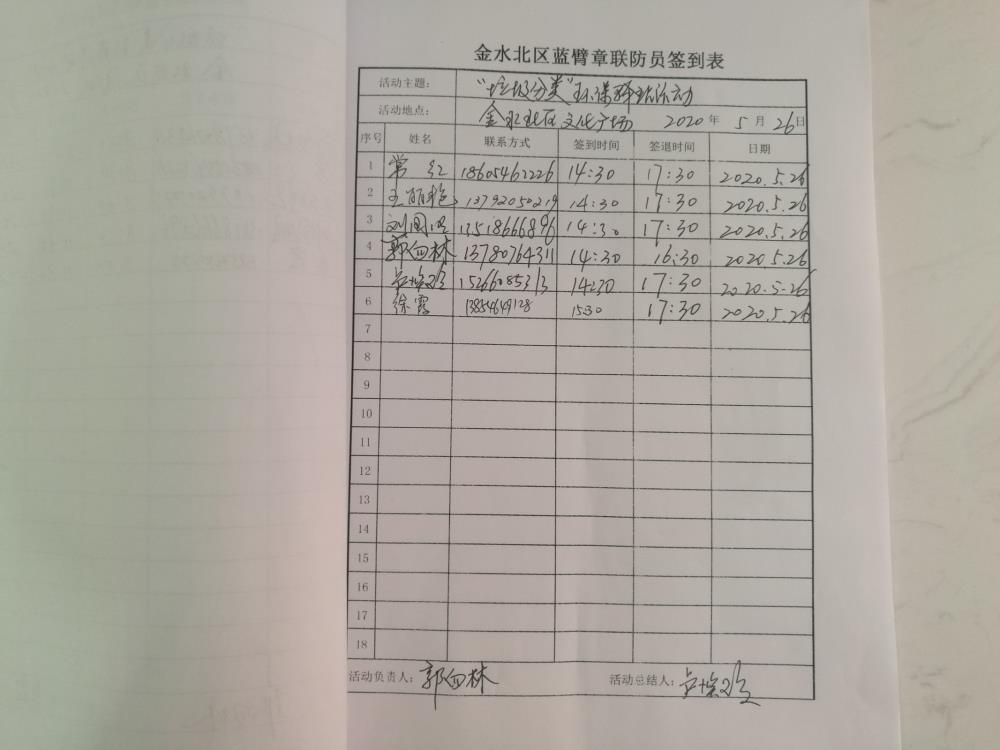 金水北区蓝臂章联防员签到表
活动主题: "垃圾分类"环保 活动
活动地点: 金水北区文化广场 2020年5月26日
序号 姓名 联系方式 签到时间 签退时间 日期
1 常红 18605462226 14:30 17:30 2020.5.26
2 王丽艳 13792050219 14:30 17:30 2020.5.26
3 刘国 13518666896 14:30 17:30 2020.5.26
4 郭向林 13780764311 14:30 16:30 2020.5.26
5 15266085313 14:30 17:30 2020.5.26
6 徐霞 13854649128 15:30 17:30 2020.5.26
7
8
9
10
11
12
13
14
15
16
17
18
活动负责人: 郭向林 活动总结人: